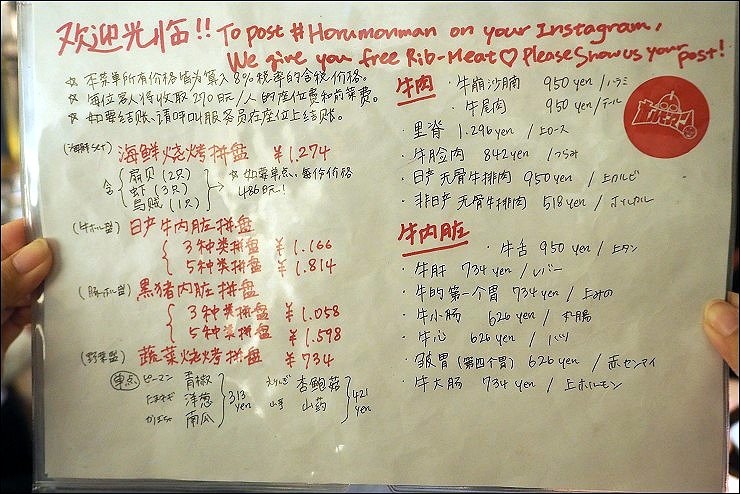 欢迎光临!! To post #Horumonman on your Instagram,
We give you free Rib-Meat♡ Please Show us your post!
☆ 本菜单所有价格皆为算入8%税率的含税价格。
☆ 每位客人将收取270日元/人的座位费和前菜费。
☆ 如要结账,请呼叫服务员在座位上结账。
(海鮮set) 海鲜烧烤拼盘 ¥1.274
含 扇贝(2只)
虾(3只)
鸟贼(1只)
☆ 如菜单点,每份价格
486日元!
(牛ホル盛) 日产牛内脏拼盘
3种类拼盘 ¥1.166
5种类拼盘 ¥1.814
(豚ホル盛) 黑猪内脏拼盘
3种类拼盘 ¥1.058
5种类拼盘 ¥1.598
(野菜盛) 蔬菜烧烤拼盘 ¥734
单点 ピーマン 青椒
たまねぎ 洋葱
南瓜
313 yen
えりんぎ 杏鲍菇
山芋 山药
421 yen
牛肉
・牛崩沙腩 950 yen /ハラミ
牛尾肉 950 yen /テール
・里脊 1.296 yen /上ロース
・牛脸肉 842 yen /つらみ
・日产无骨牛排肉 950 yen /上カルビ
・非日产无骨牛排肉 518 yen /ホルカル
牛内脏
・牛舌 950 yen /上タン
・牛肝 734 yen /レバー
・牛的第一个胃 734 yen /上みの
・牛小肠 626 yen /丸腸
・牛心 626 yen /ハツ
・皱胃(第四个胃) 626 yen /赤センマイ
・牛大肠 734 yen /上ホルモン
ホルモンマン